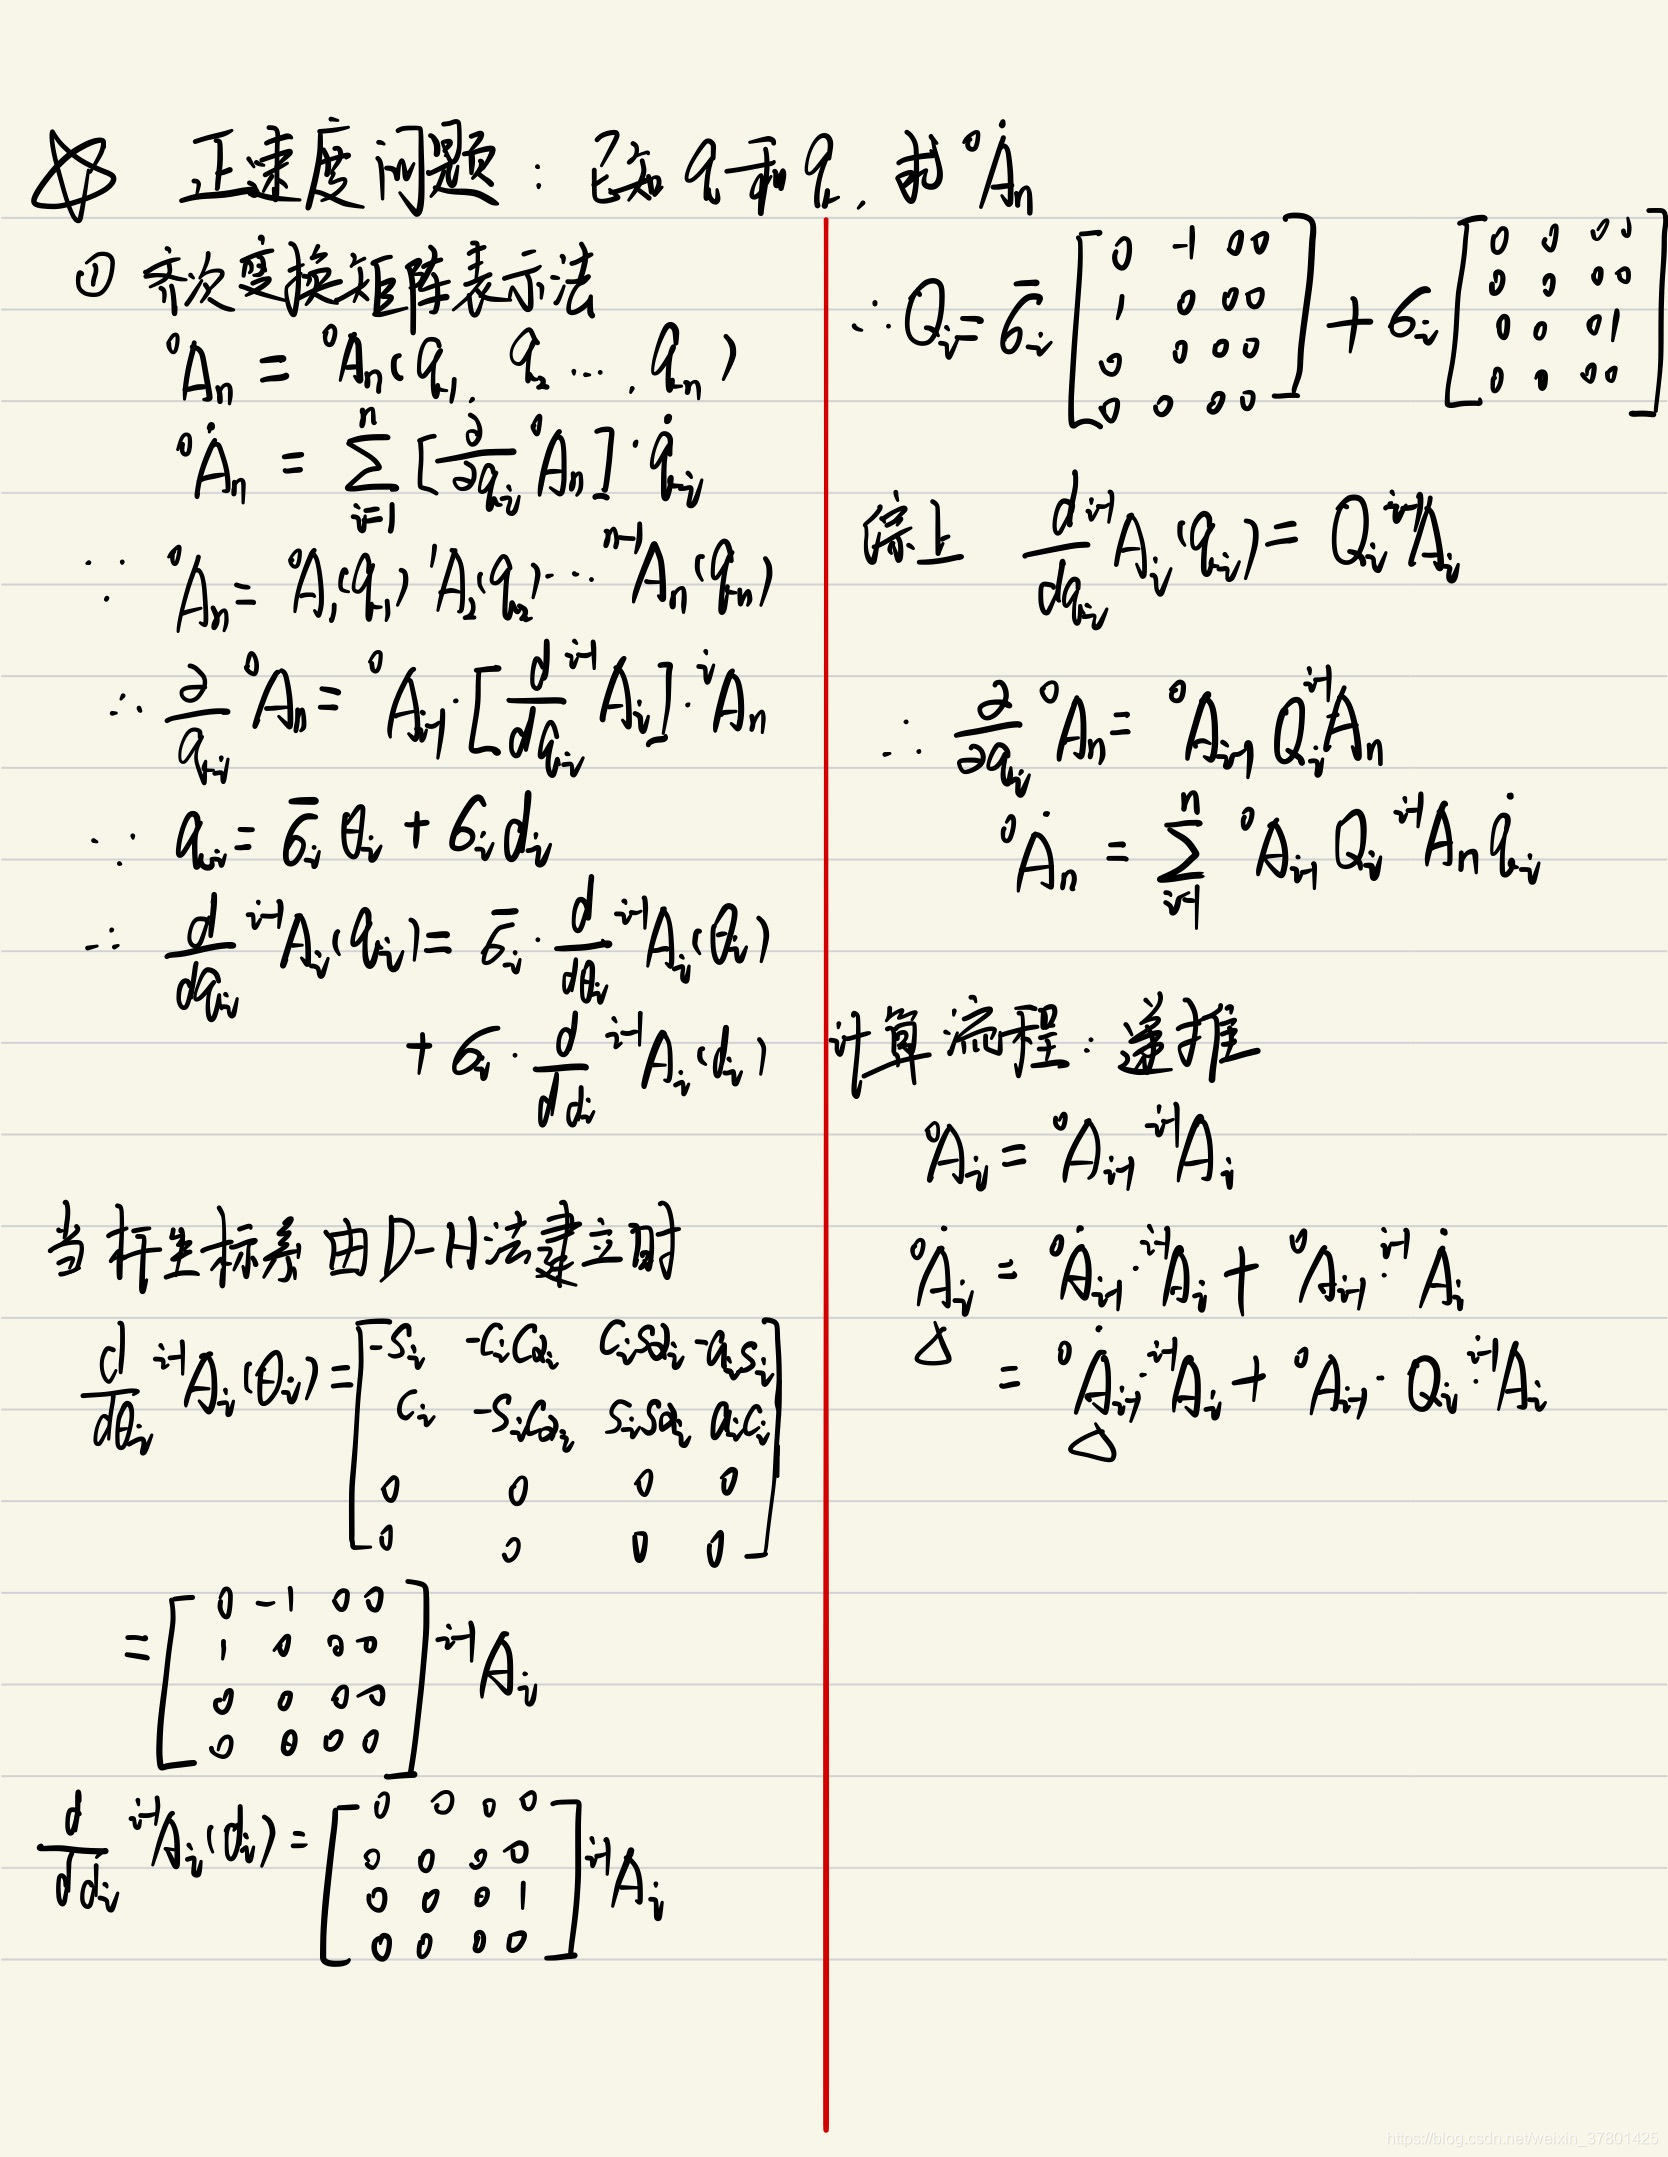 ☆ 正速度问题：已知 q 和 q̇, 求 ⁰Ȧₙ
① 齐次变换矩阵表示法
⁰Aₙ = ⁰Aₙ(q₁, q₂ …, qₙ)
⁰Ȧₙ = Σ_{i=1}^{n} [∂/∂qᵢ ⁰Aₙ]·q̇ᵢ
∵ ⁰Aₙ = ⁰A₁(q₁) ¹A₂(q₂) … ⁿ⁻¹Aₙ(qₙ)
∴ ∂/qᵢ ⁰Aₙ = ⁰Aᵢ₋₁·[d/dqᵢ ⁱ⁻¹Aᵢ]·ⁱAₙ
∵ qᵢ = σ̄ᵢ θᵢ + σᵢ dᵢ
∴ d/dqᵢ ⁱ⁻¹Aᵢ(qᵢ) = σ̄ᵢ · d/dθᵢ ⁱ⁻¹Aᵢ(θᵢ)
+ σᵢ · d/ddᵢ ⁱ⁻¹Aᵢ(dᵢ)
当杆坐标系由D-H法建立时
d/dθᵢ ⁱ⁻¹Aᵢ(θᵢ) = [-sᵢ -cᵢcαᵢ cᵢsαᵢ -aᵢsᵢ
cᵢ -sᵢcαᵢ sᵢsαᵢ aᵢcᵢ
0 0 0 0
0 0 0 0]
= [0 -1 0 0
1 0 0 0
0 0 0 0
0 0 0 0] ⁱ⁻¹Aᵢ
d/ddᵢ ⁱ⁻¹Aᵢ(dᵢ) = [0 0 0 0
0 0 0 0
0 0 0 1
0 0 0 0] ⁱ⁻¹Aᵢ
∴ Qᵢ = σ̄ᵢ [0 -1 0 0; 1 0 0 0; 0 0 0 0; 0 0 0 0] + σᵢ [0 0 0 0; 0 0 0 0; 0 0 0 1; 0 0 0 0]
综上 d/dqᵢ ⁱ⁻¹Aᵢ(qᵢ) = Qᵢ ⁱ⁻¹Aᵢ
∴ ∂/∂qᵢ ⁰Aₙ = ⁰Aᵢ₋₁ Qᵢ ⁱ⁻¹Aₙ
⁰Ȧₙ = Σ_{i=1}^{n} ⁰Aᵢ₋₁ Qᵢ ⁱ⁻¹Aₙ q̇ᵢ
计算流程：递推
⁰Aᵢ = ⁰Aᵢ₋₁ ⁱ⁻¹Aᵢ
⁰Ȧᵢ = ⁰Ȧᵢ₋₁·ⁱ⁻¹Aᵢ + ⁰Aᵢ₋₁·ⁱ⁻¹Ȧᵢ
△
= ⁰Ȧᵢ₋₁·ⁱ⁻¹Aᵢ + ⁰Aᵢ₋₁·Qᵢ·ⁱ⁻¹Aᵢ
△
https://blog.csdn.net/weixin_37801425